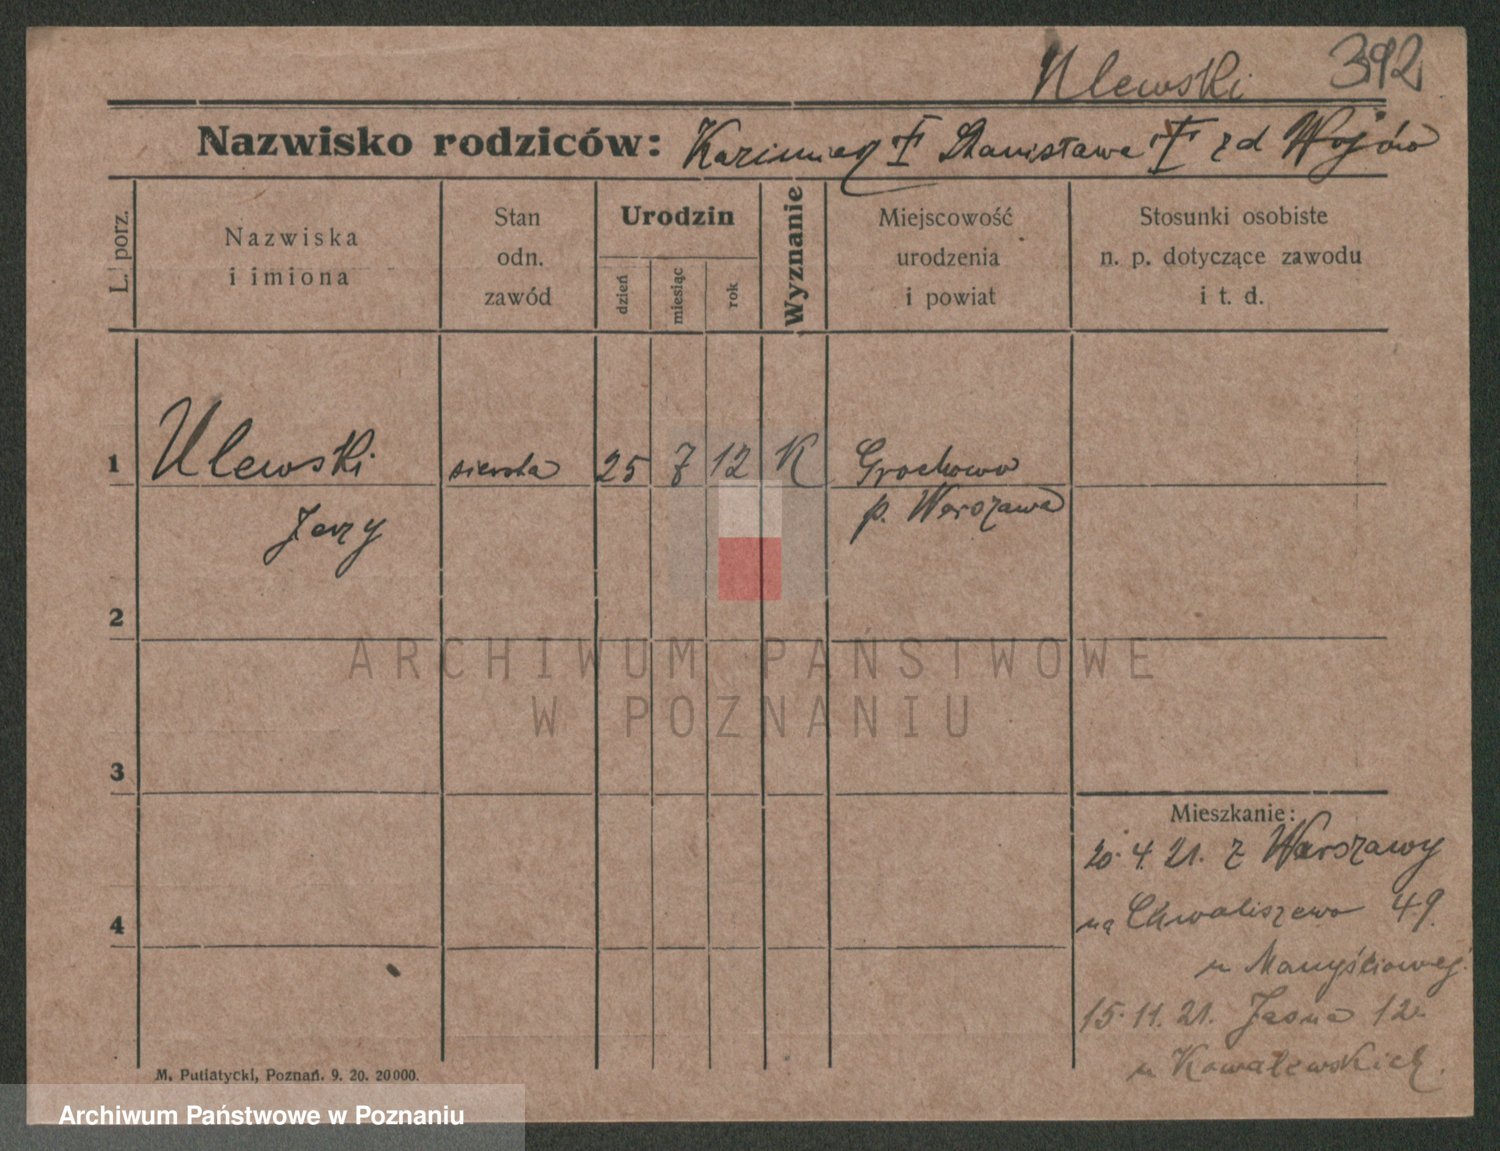 Ulewski 392
Nazwisko rodziców: Kazimierz † Stanisława † zd Wojów
L. porz.
Nazwiska
i imiona
Stan
odn.
zawód
Urodzin
dzień
miesiąc
rok
Wyznanie
Miejscowość
urodzenia
i powiat
Stosunki osobiste
n. p. dotyczące zawodu
i t. d.
1 Ulewski sierota 25 7 12 K Grochowo
Jerzy p. Warszawa
2
3
4
Mieszkanie:
20.4.21. z Warszawy
na Chwaliszewo 49.
u
15.11.21. Jasna 12.
u Kowalewskich.
M. Putiatycki, Poznań. 9. 20. 20000.
ARCHIWUM PAŃSTWOWE
W POZNANIU
Archiwum Państwowe w Poznaniu